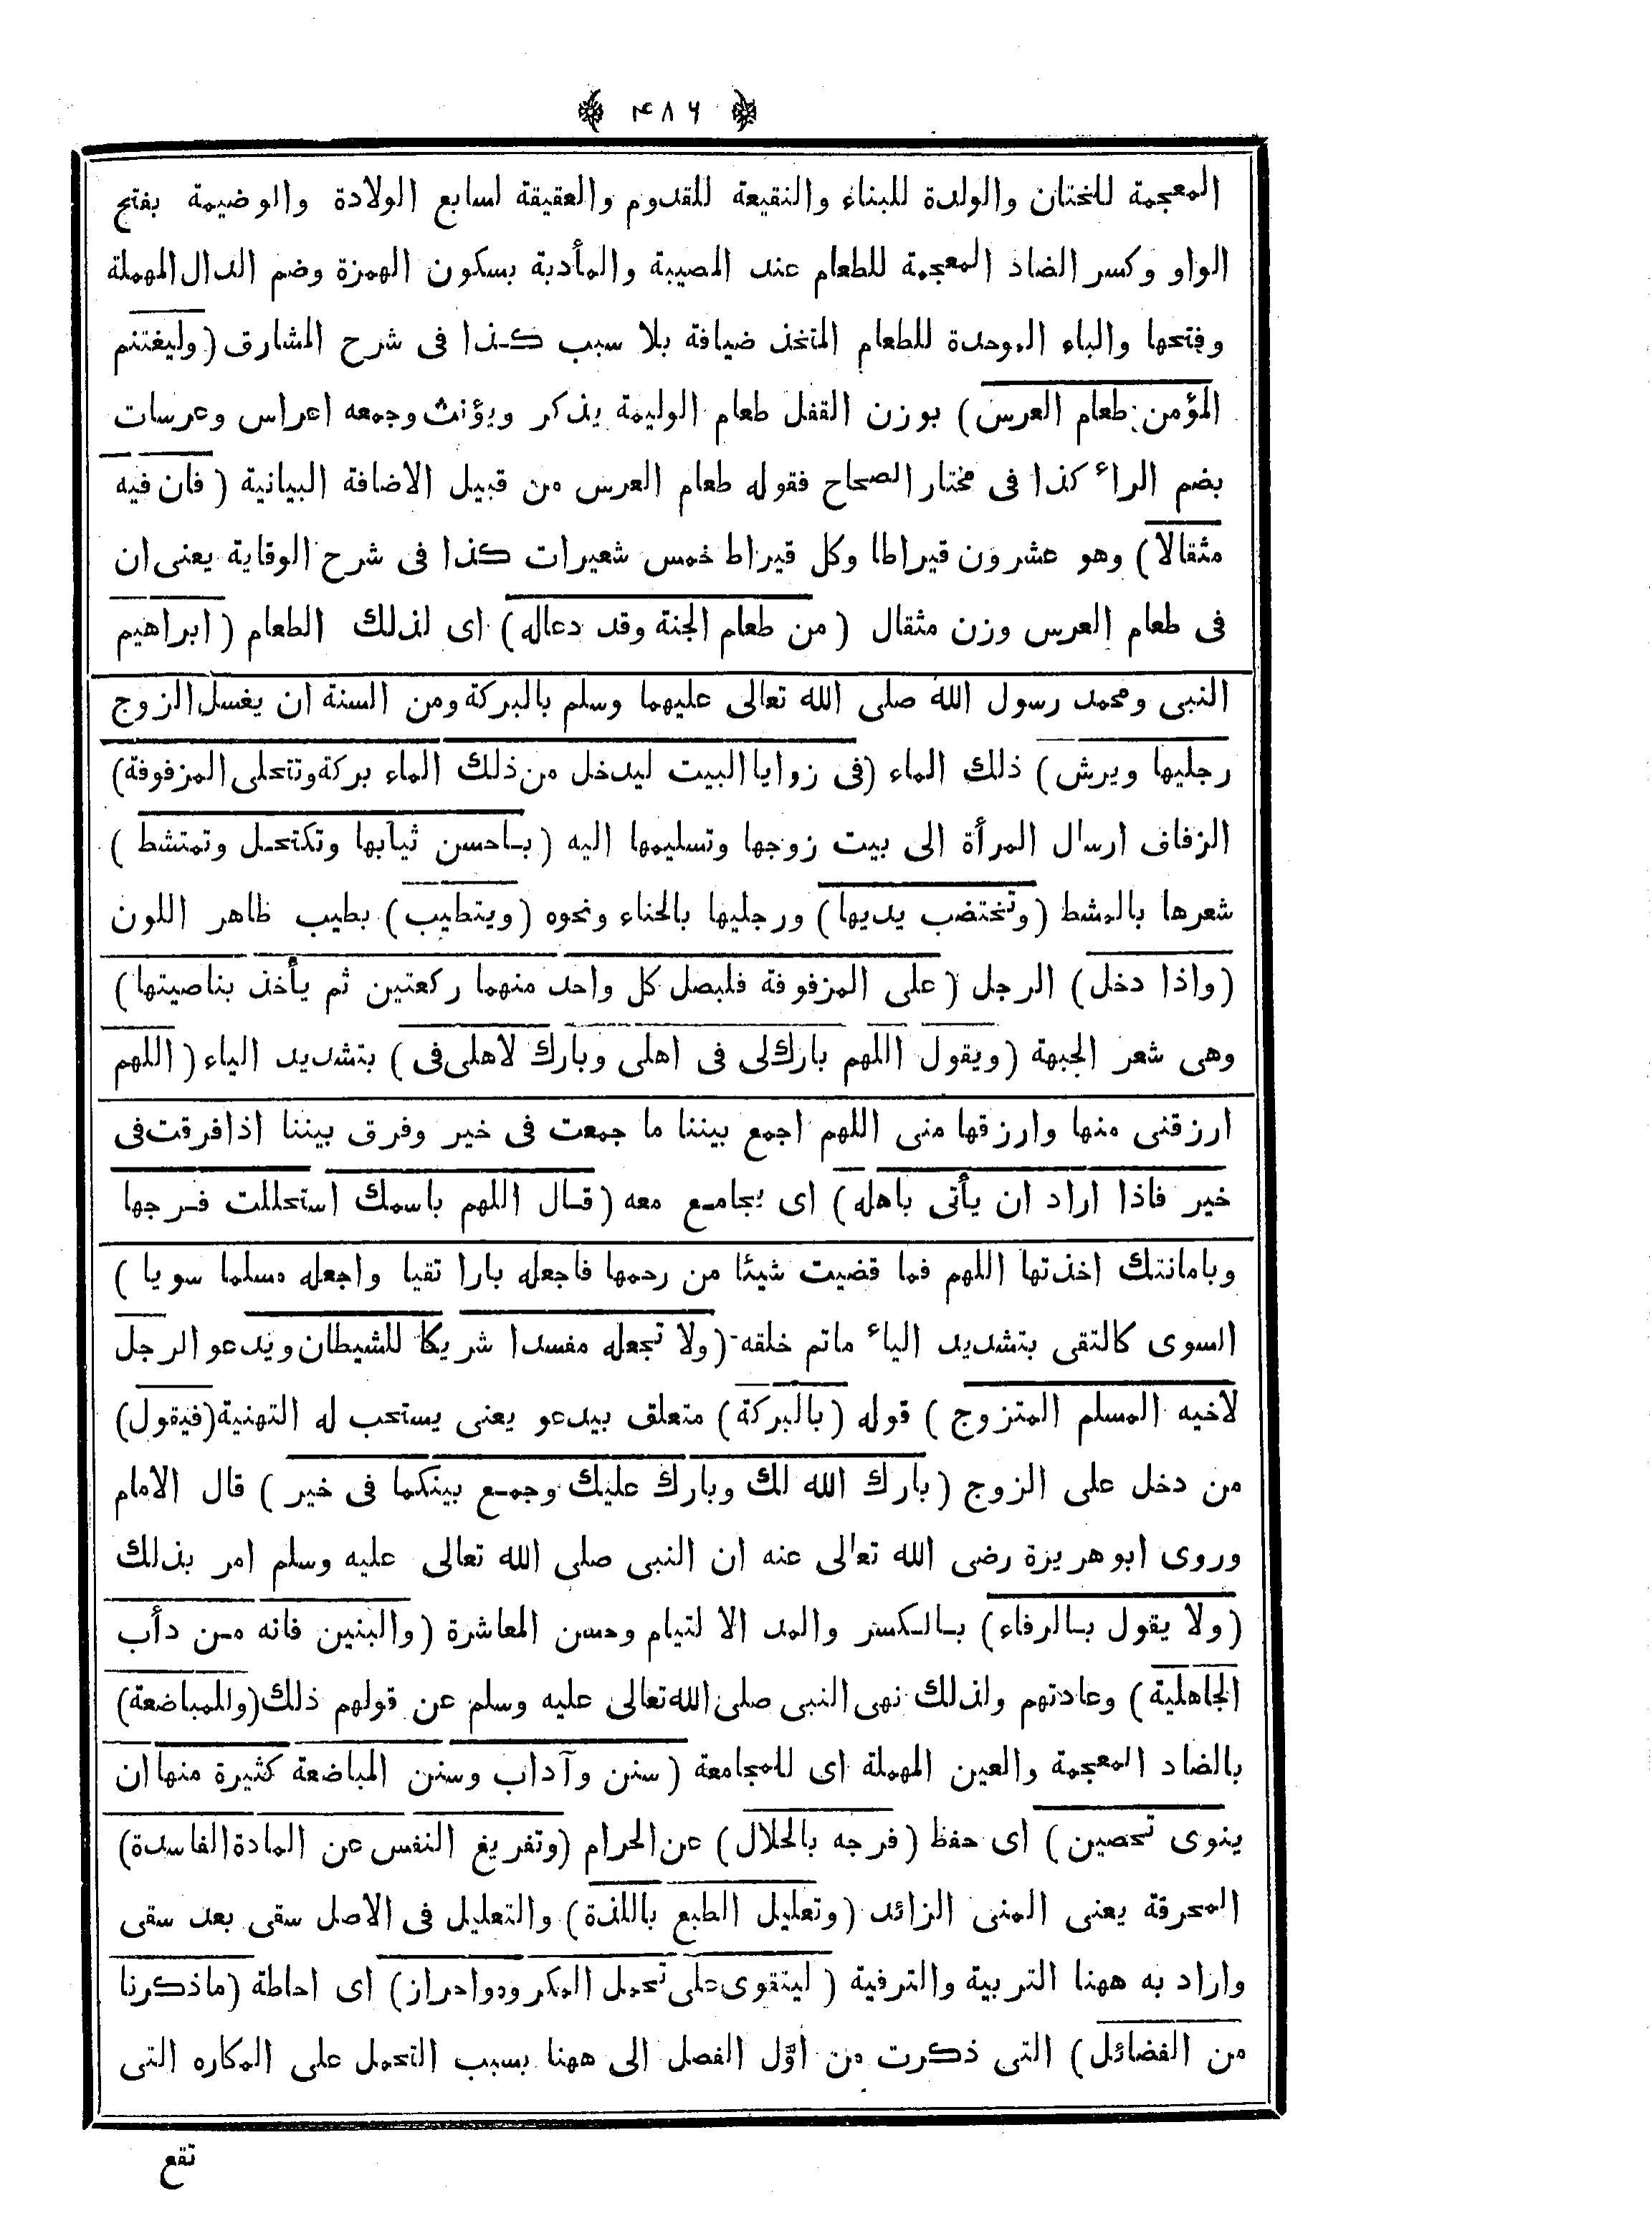 ﴿ ٤٨٦ ﴾
المعجمة للختان والولدة للبناء والنقيعة للقدوم والعقيقة لسابع الولادة والوضيمة بفتح
الواو وكسر الضاد المعجمة للطعام عند المصيبة والمأدبة بسكون الهمزة وضم الدال المهملة
وفتحها والباء الموحدة للطعام المتخذ ضيافة بلا سبب كذا فى شرح المشارق ( وليغتنم
المؤمن طعام العرس ) بوزن القفل طعام الوليمة يذكر ويؤنث وجمعه اعراس وعرسات
بضم الراء كذا فى مختار الصحاح فقوله طعام العرس من قبيل الاضافة البيانية ( فان فيه
مثقالا ) وهو عشرون قيراطا وكل قيراط خمس شعيرات كذا فى شرح الوقاية يعنى ان
فى طعام العرس وزن مثقال ( من طعام الجنة وقد دعاله ) اى لذلك الطعام ( ابراهيم
النبى ومحمد رسول الله صلى الله تعالى عليهما وسلم بالبركة ومن السنة ان يغسل الزوج
رجليها ويرش ) ذلك الماء ( فى زوايا البيت ليدخل من ذلك الماء بركة وتتحلى المزفوفة )
الزفاف ارسال المرأة الى بيت زوجها وتسليمها اليه ( باحسن ثيابها وتكتحل وتمتشط )
شعرها بالمشط ( وتختضب يديها ) ورجليها بالحناء ونحوه ( ويتطيب ) بطيب ظاهر اللون
( واذا دخل ) الرجل ( على المزفوفة فليصل كل واحد منهما ركعتين ثم يأخذ بناصيتها )
وهى شعر الجبهة ( ويقول اللهم بارك لى فى اهلى وبارك لاهلى فى ) بتشديد الياء ( اللهم
ارزقنى منها وارزقها منى اللهم اجمع بيننا ما جمعت فى خير وفرق بيننا اذا فرقت فى
خير فاذا اراد ان يأتى باهله ) اى يجامع معه ( قال اللهم باسمك استحللت فرجها
وبامانتك اخذتها اللهم فما قضيت شيئا من رحمها فاجعله بارا تقيا واجعله مسلما سويا )
السوى كالتقى بتشديد الياء ماتم خلقه ( ولا تجعله مفسدا شريكا للشيطان ويدعو الرجل
لاخيه المسلم المتزوج ) قوله ( بالبركة ) متعلق بيدعو يعنى يستحب له التهنية ( فيقول )
من دخل على الزوج ( بارك الله لك وبارك عليك وجمع بينكما فى خير ) قال الامام
وروى ابو هريرة رضى الله تعالى عنه ان النبى صلى الله تعالى عليه وسلم امر بذلك
( ولا يقول بالرفاء ) بالكسر والمد الا لتيام وحسن المعاشرة ( والبنين فانه من دأب
الجاهلية ) وعادتهم ولذلك نهى النبى صلى الله تعالى عليه وسلم عن قولهم ذلك ( وللمباضعة )
بالضاد المعجمة والعين المهملة اى للمجامعة ( سنن وآداب وسنن المباضعة كثيرة منها ان
ينوى تحصين ) اى حفظ ( فرجه بالحلال ) عن الحرام ( وتفريغ النفس عن المادة الفاسدة )
المحرقة يعنى المنى الزائد ( وتعليل الطبع باللذة ) والتعليل فى الاصل سقى بعد سقى
واراد به ههنا التربية والترفية ( ليتقوى على تحمل المكروه واحراز ) اى احاطة ( ماذكرنا
من الفضائل ) التى ذكرت من اوّل الفصل الى ههنا بسبب التحمل على المكاره التى
تقع